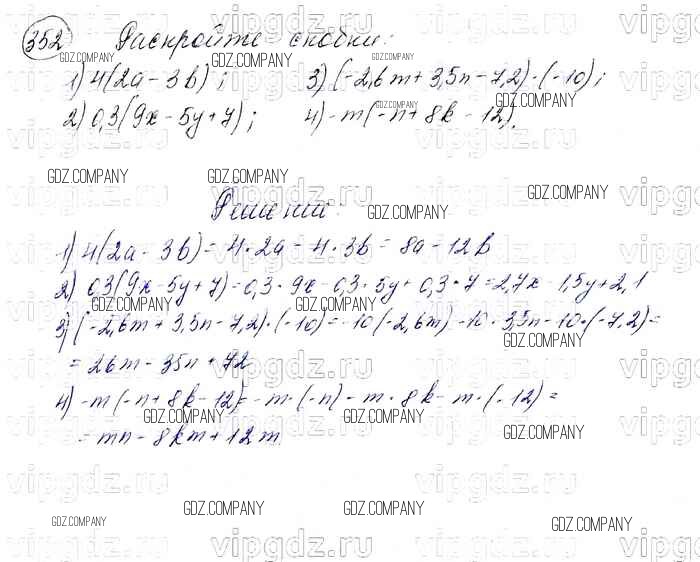 352 Раскройте скобки:
1) 4(2a - 3b); 3) (-2,6m + 3,5n - 7,2) · (-10);
2) 0,3(9x - 5y + 7); 4) -m(-n + 8k - 12).
Решение:
1) 4(2a - 3b) = 4 · 2a - 4 · 3b = 8a - 12b
2) 0,3(9x - 5y + 7) = 0,3 · 9x - 0,3 · 5y + 0,3 · 7 = 2,7x - 1,5y + 2,1
3) (-2,6m + 3,5n - 7,2) · (-10) = -10(-2,6m) - 10 · 3,5n - 10 · (-7,2) =
= 26m - 35n + 72
4) -m(-n + 8k - 12) = -m · (-n) - m · 8k - m · (-12) =
= mn - 8km + 12m